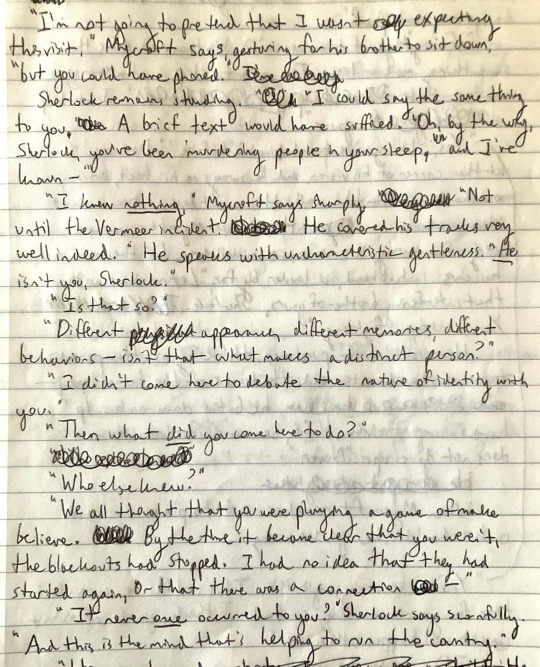 "I'm not going to pretend that I wasn't expecting
this visit," Mycroft says, gesturing for his brother to sit down,
"but you could have phoned."
Sherlock remains standing. "I could say the same thing
to you. A brief text would have sufficed. 'Oh, by the way,
Sherlock, you've been murdering people in your sleep,' and I've
known —"
"I knew nothing," Mycroft says sharply. "Not
until the Vermeer incident. He covered his tracks very
well indeed." He speaks with uncharacteristic gentleness. "He
isn't you, Sherlock."
"Is that so?"
"Different appearance, different memories, different
behaviors — isn't that what makes a distinct person?"
"I didn't come here to debate the nature of identity with
you."
"Then what did you come here to do?"
"Who else knew?"
"We all thought that you were playing a game of make
believe. By the time it became clear that you weren't,
the blackouts had stopped. I had no idea that they had
started again, or that there was a connection —"
"It never once occurred to you?" Sherlock says scornfully.
"And this is the mind that's helping to run the country."